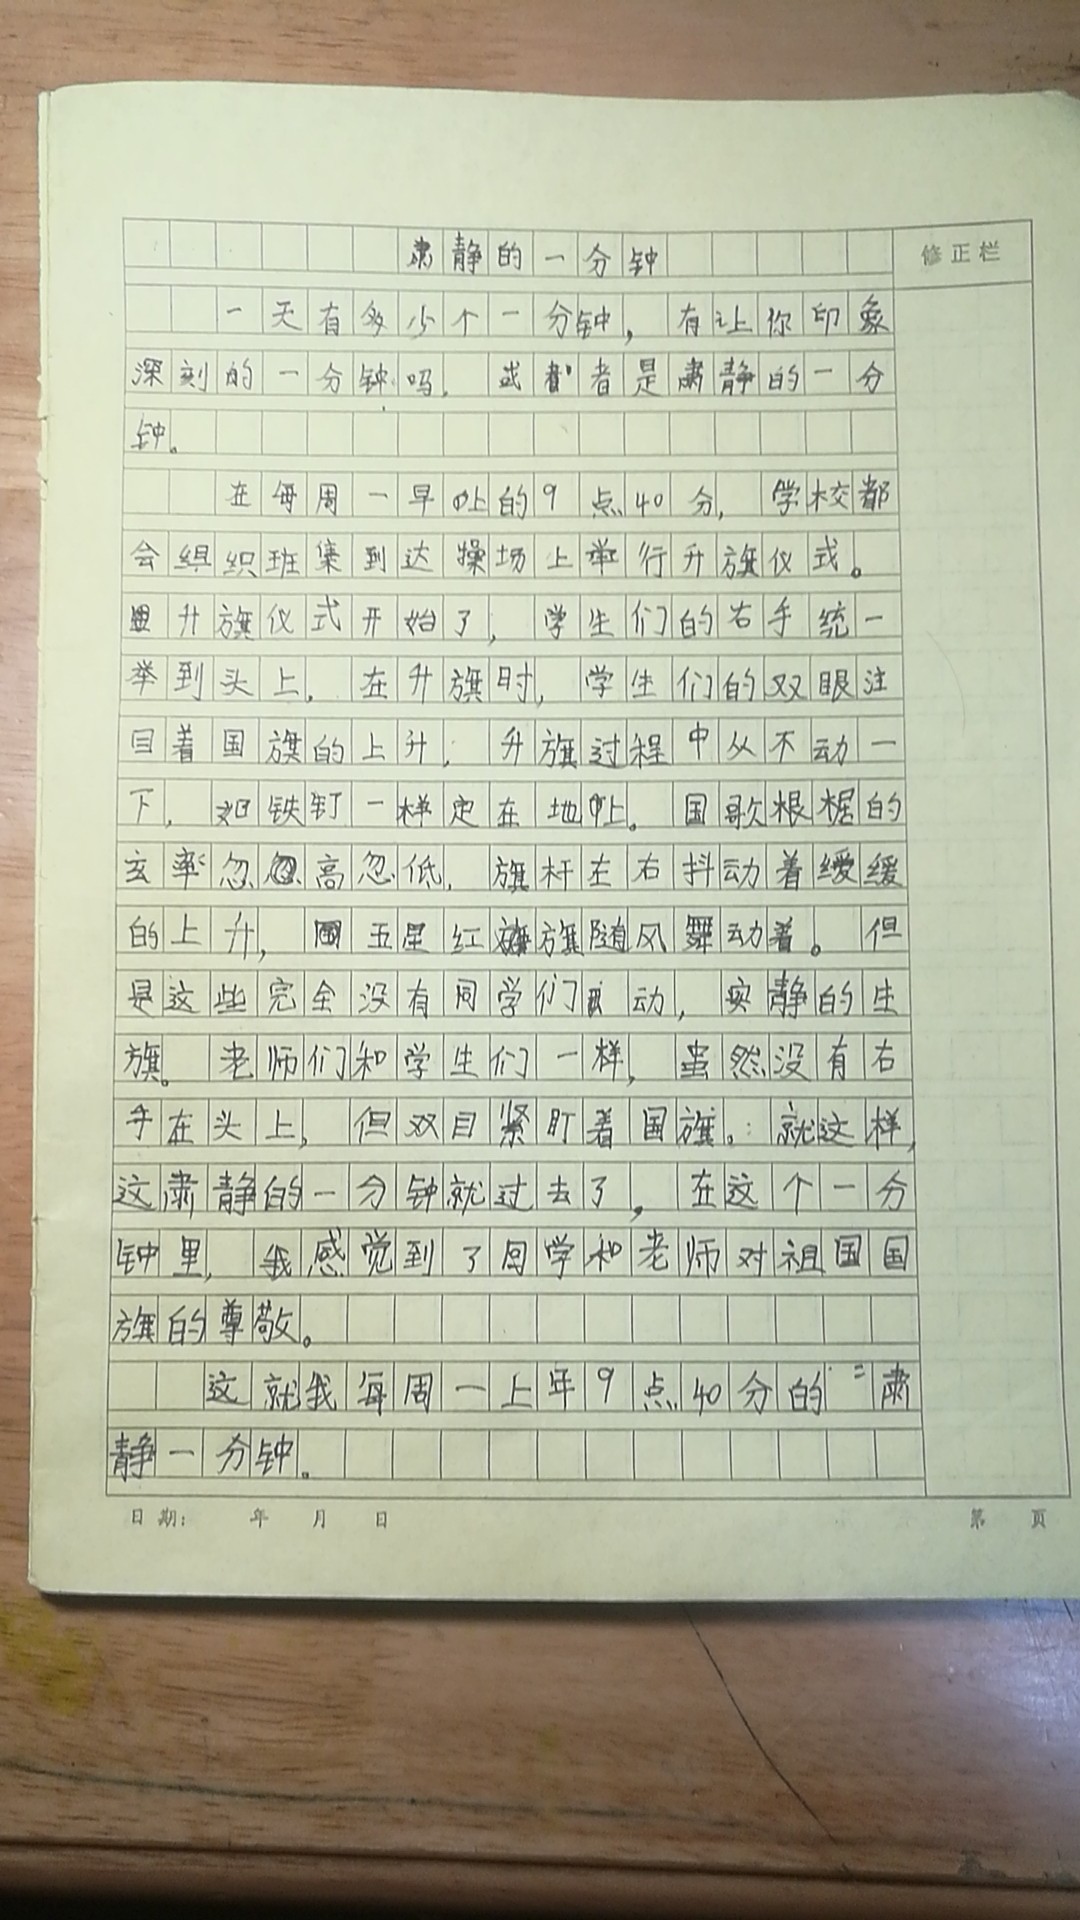 肃静的一分钟
修正栏
一天有多少个一分钟，有让你印象
深刻的一分钟吗，或者是肃静的一分
钟。
在每周一早上的9点40分，学校都
会组织班集到达操场上举行升旗仪式。
升旗仪式开始了，学生们的右手统一
举到头上，在升旗时，学生们的双眼注
目着国旗的上升，升旗过程中从不动一
下，如铁钉一样定在地上。国歌根据的
玄率忽高忽低，旗杆左右抖动着缓缓
的上升，五星红旗随风舞动着。但
是这些完全没有同学们动，安静的生
旗。老师们和学生们一样，虽然没有右
手在头上，但双目紧盯着国旗。就这样，
这肃静的一分钟就过去了，在这个一分
钟里，我感觉到了同学和老师对祖国国
旗的尊敬。
这就我每周一上午9点40分的肃
静一分钟。
日期： 年 月 日
第 页